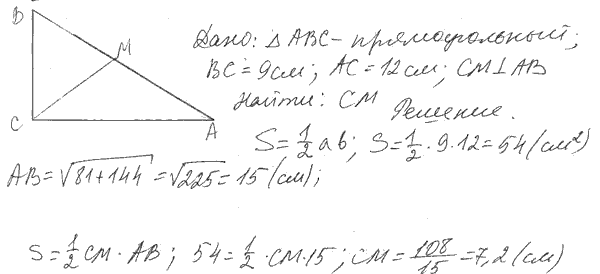 B
M
C
A
Дано: △ABC - прямоугольный;
BC = 9 см; AC = 12 см; CM⊥AB
Найти: CM
Решение.
S = 1/2 ab; S = 1/2 · 9 · 12 = 54 (см²)
AB = √81+144 = √225 = 15 (см);
S = 1/2 CM · AB; 54 = 1/2 · CM · 15; CM = 108/15 = 7,2 (см)